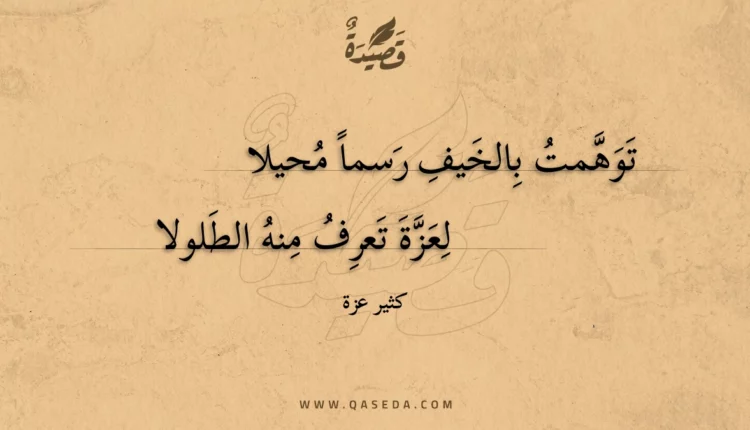 قَصِيْدَةٌ
تَوَهَّمتُ بِالخَيفِ رَسماً مُحيلا
لِعَزَّةَ تَعرِفُ مِنهُ الطَلولا
كثير عزة
WWW.QASEDA.COM